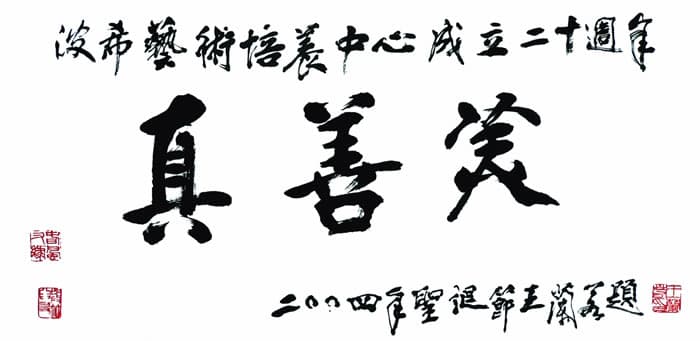 波希藝術培養中心成立二十週年
真善美
二〇〇四年聖誕節王蘭若題